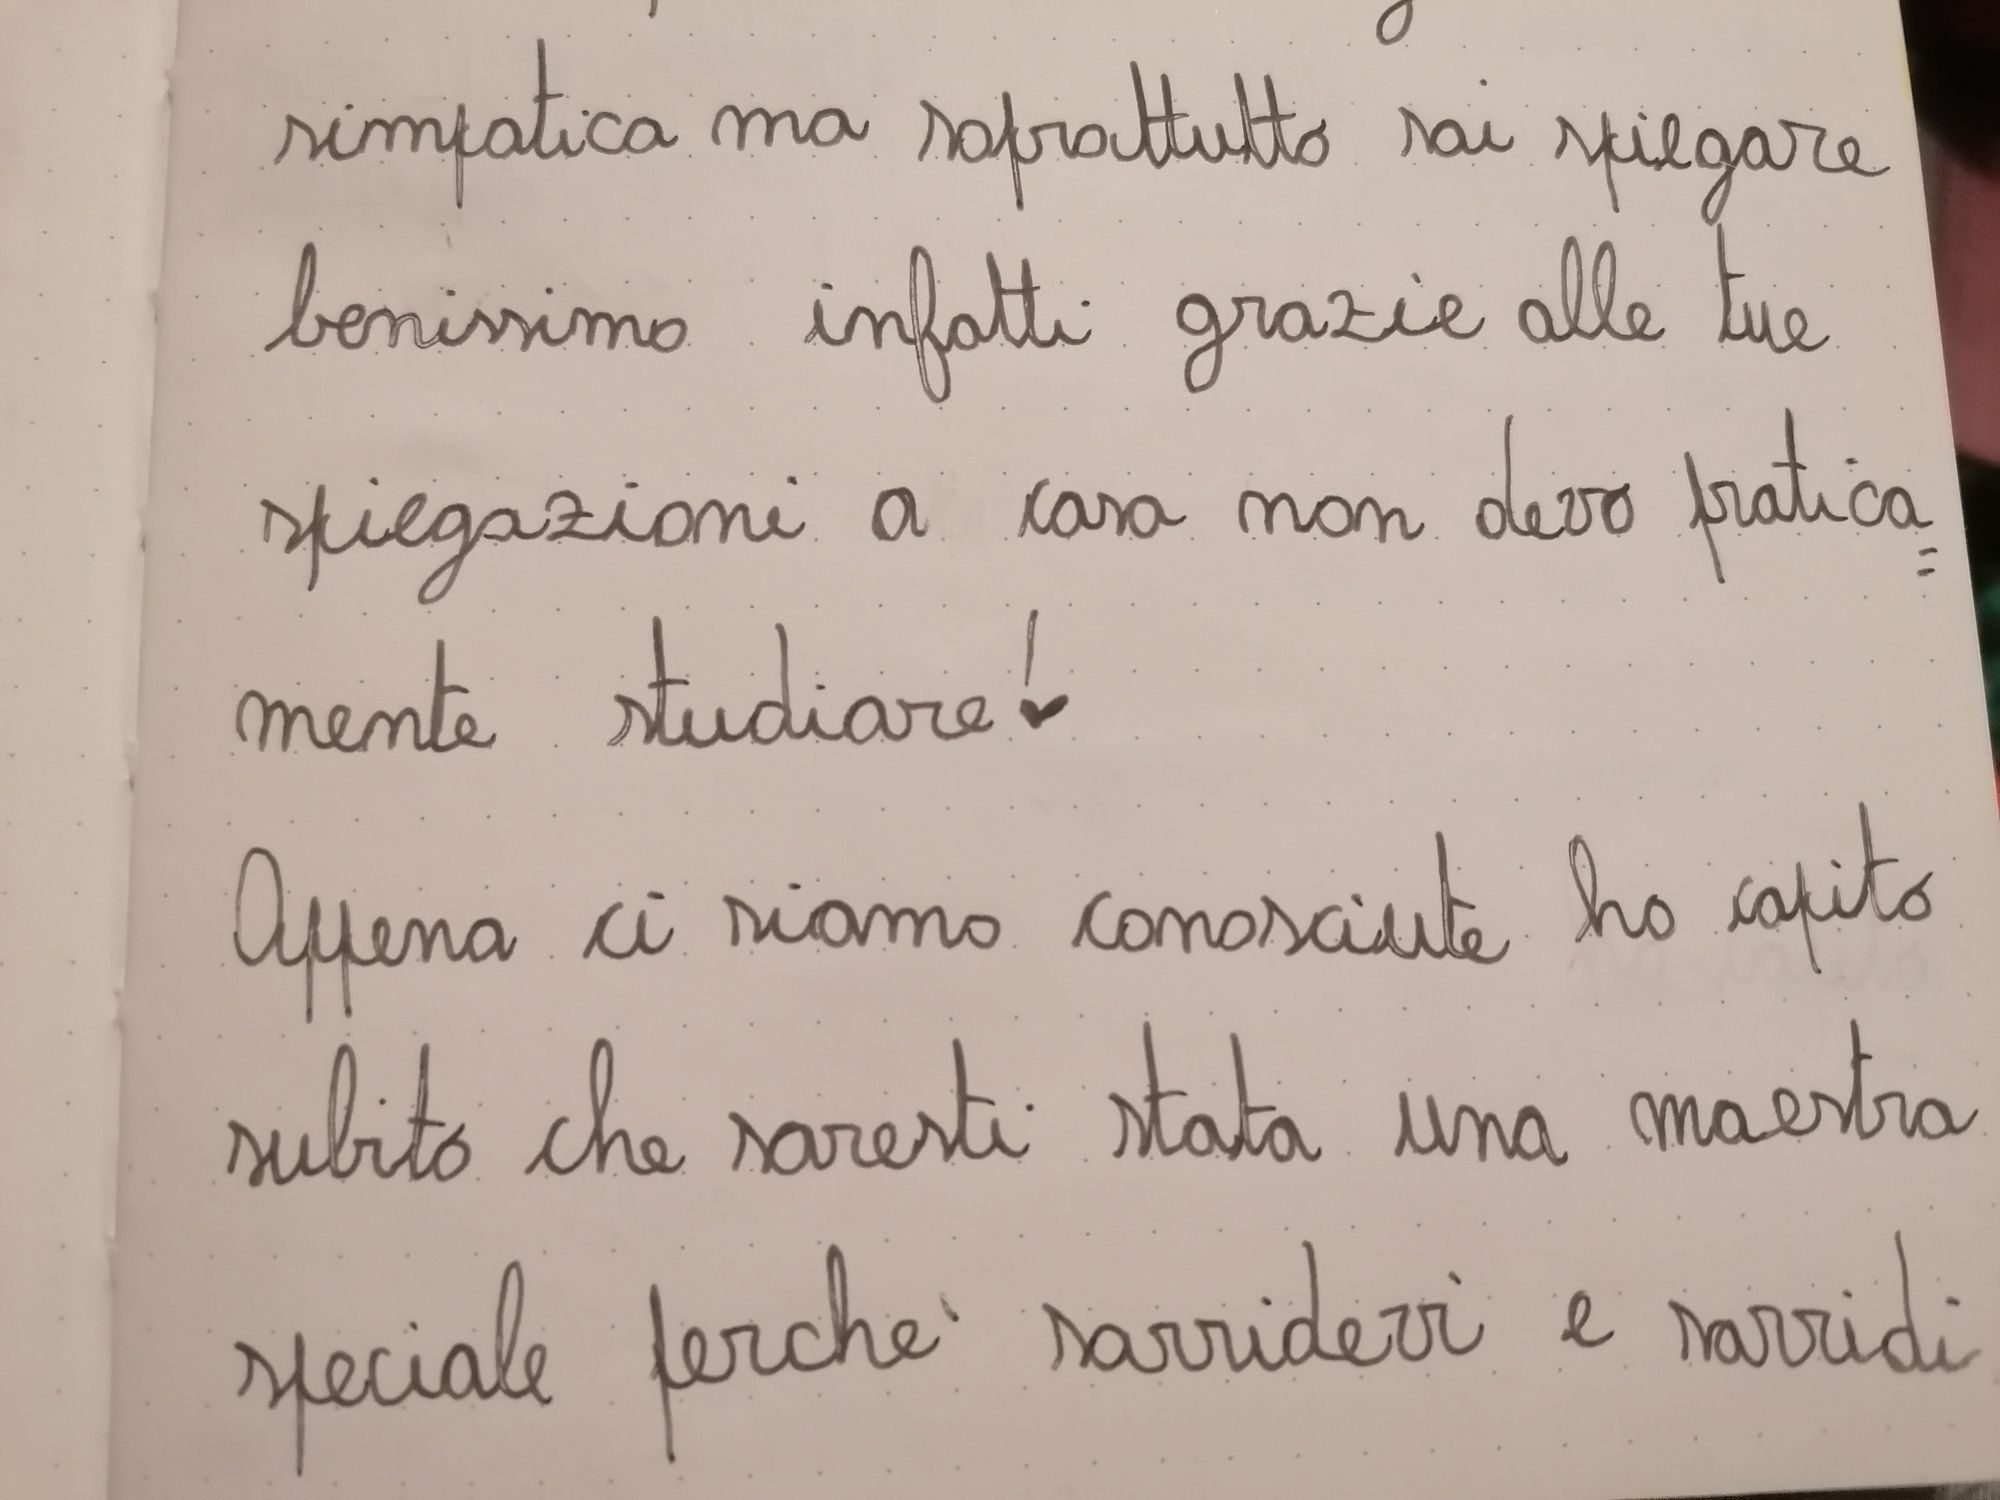 simpatica ma soprattutto sai spiegare
benissimo infatti grazie alle tue
spiegazioni a casa non devo pratica=
mente studiare!
Appena ci siamo conosciute ho capito
subito che saresti stata una maestra
speciale perche' sorridevi e sorridi